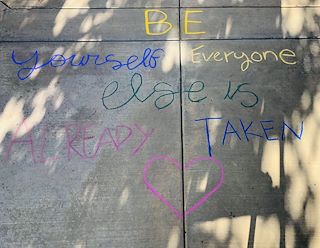 BE
yourself Everyone
else is
ALREADY TAKEN